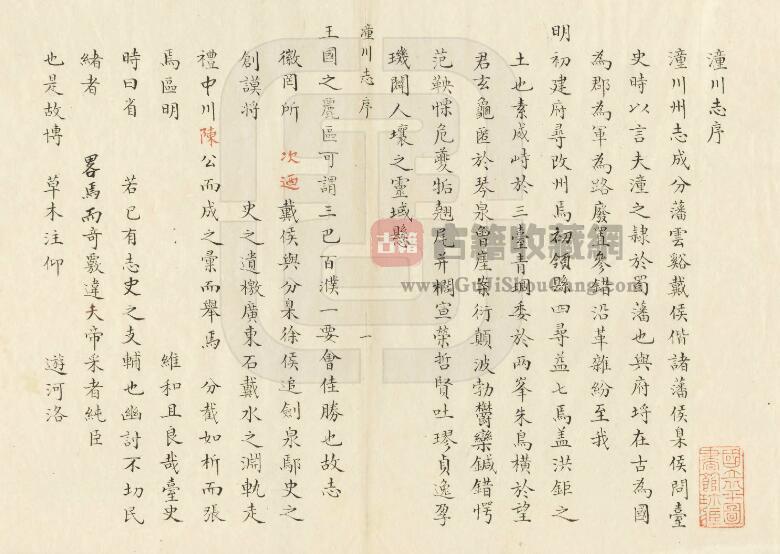 潼川志序
潼川州志成分藩雲谿戴侯偕諸藩侯臬侯問臺
史時以言夫潼之隸於蜀藩也與府埒在古為國
為郡為軍為路廢置參錯沿革雜紛至我
明初建府尋改州焉初領縣四尋益七焉盖洪鉅之
土也素成峙於三臺青堈委於兩峯朱鳥橫於望
君玄龜匿於琴泉魯塵柴衍顛波勃鬱欒鍼錯愕
范鞅慄危夔牿翹尾并榈宣榮哲賢吐璆貞逸孕
璣闢人壤之靈域懸
潼川志序 一
王國之麗區可謂三巴百濮一要會佳勝也故志
徽罔所 次迺戴侯與分臬徐侯追劍泉鄢史之
創謨將 史之遺檄廣東石戴水之淵軌走
禮中川陳公而成之彙而舉焉 分截如析而張
焉區明 維和且良哉臺史
時曰省 若已有志史之支輔也幽討不切民
緒者 畧焉而奇覈違夫帝采者純臣
也是故博 草木注仰 遊河洛
古籍
古籍收藏網
www.GuJiShouCang.com